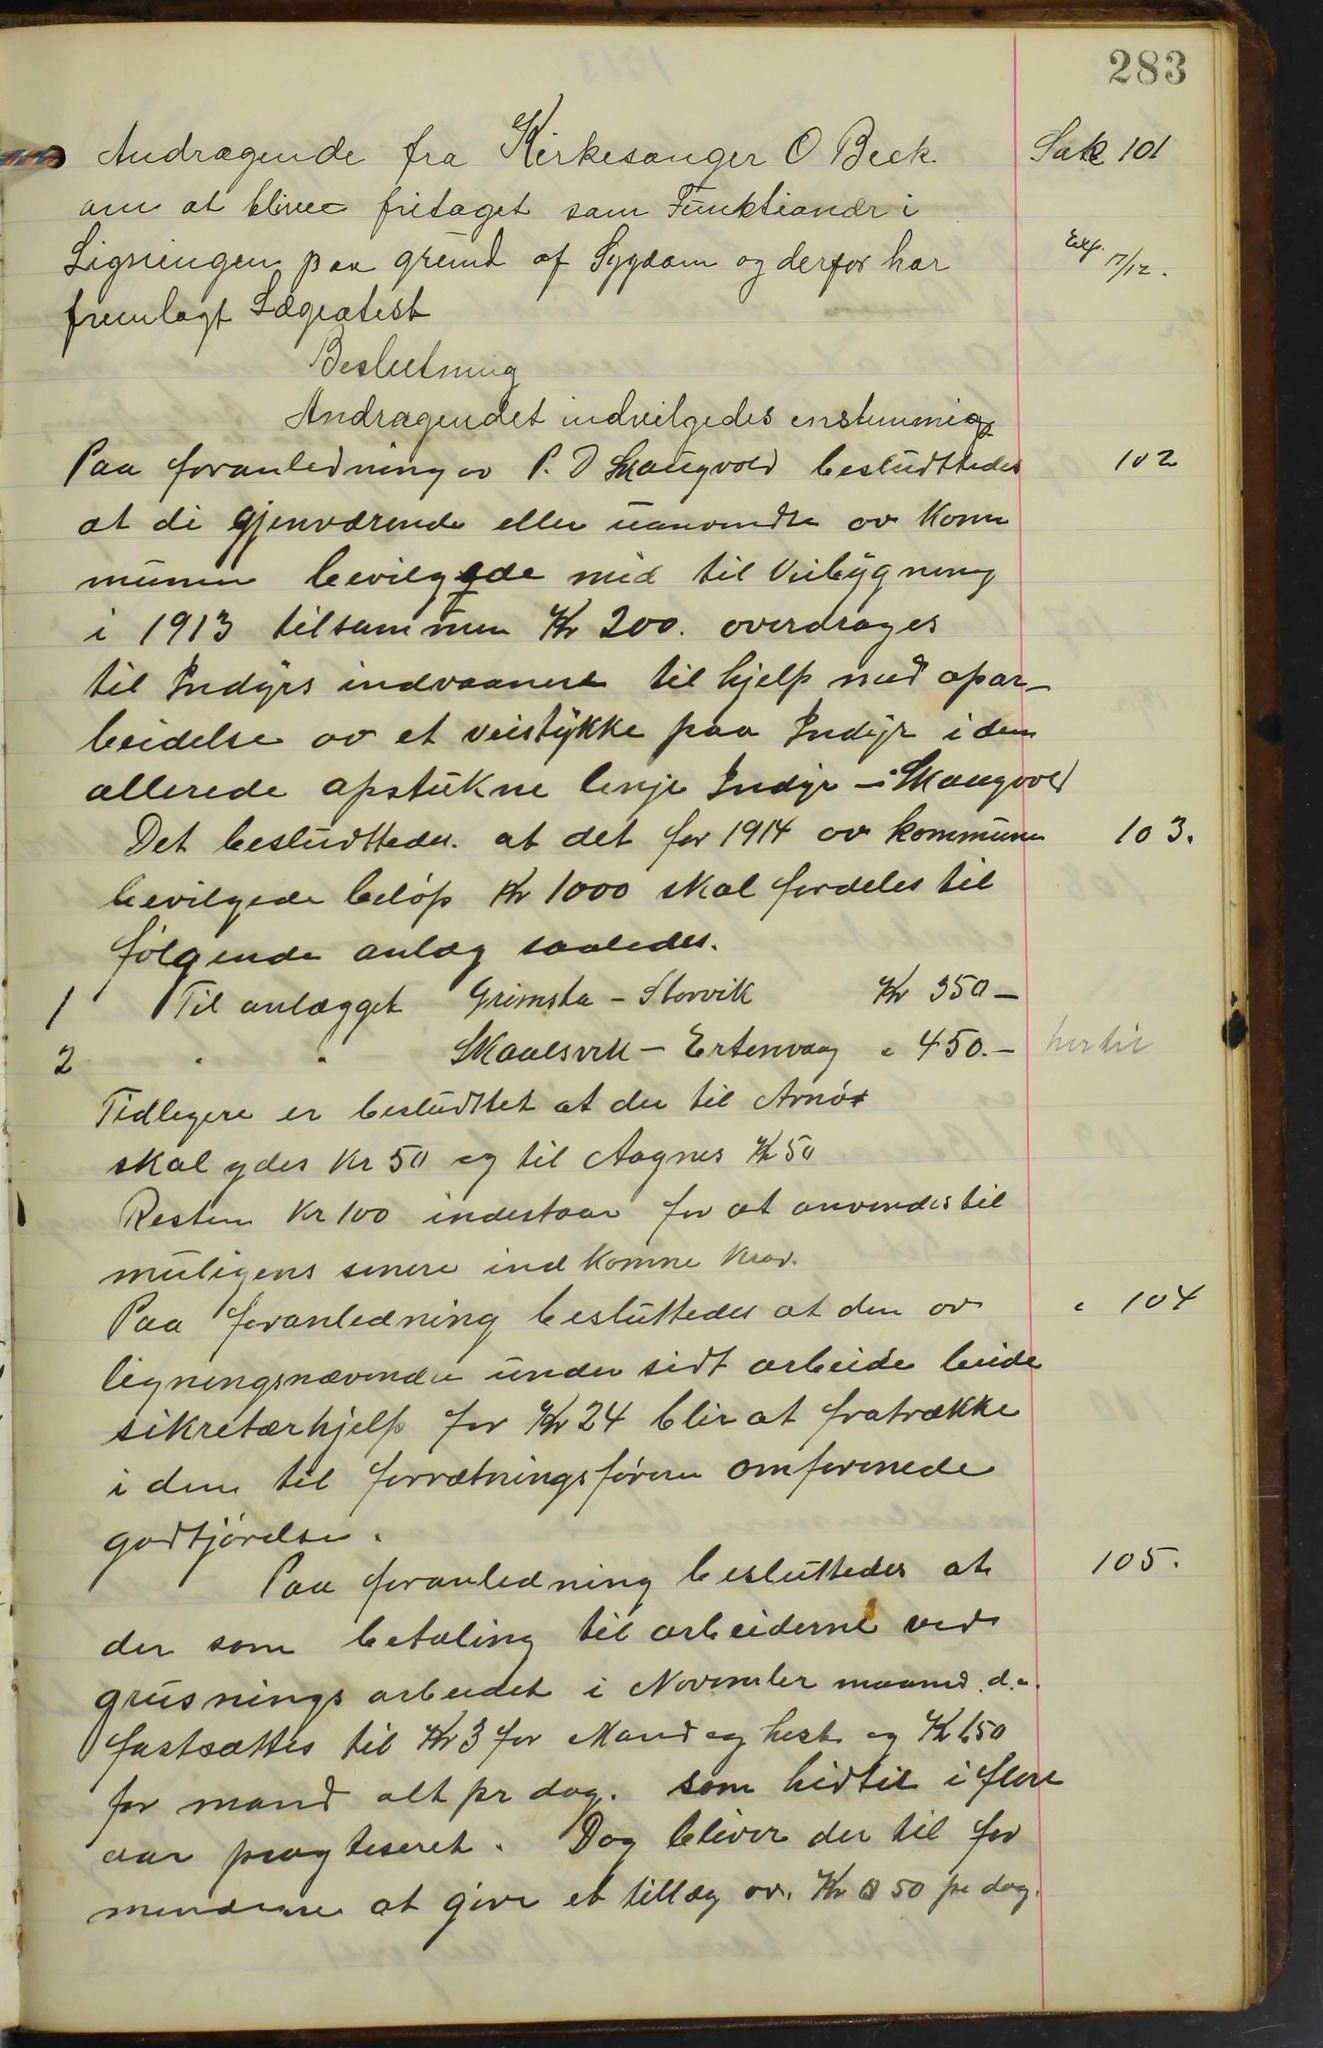 283
Andragende fra Kirkesanger O Beck Sak 101
om at blive fritaget som Funktionær i
Ligningen paa grund af Sygdom og derfor har Exp. 17/12.
fremlagt Lægeatest
Beslutning
Andragendet indvilgedes enstemmig
Paa foranledning av P. D Skaugvold besludttedes 102
at di gjenværende eller uanvendte av Kom
munen bevilgede mid til Veibygning
i 1913 tilsammen Kr 200. overdrages
til Indyrs indvaanere til hjelp med opar-
beidelse av et veistykke paa Indyr i den
allerede opstukne linje Indyr - Skaugvold
Det besludttedes. at det for 1914 av kommunen 103.
bevilgede beløp Kr 1000 skal fordeles til
følgende anlæg saaledes.
1 Til anlægget Grimsta - Storvik Kr 350 -
2 " " Skaalsvik - Ertenvaag " 450. - hertil
Tidligere er besludttet at der til Arnøx
skal ydes Kr 50 og til Aagnes Kr 50
Resten Kr 100 indestaar for at anvendes til
muligens senere ind komne krav.
Paa foranledning besluttedes at den av " 104
ligningsnævnden under sidt arbeide leide
sikretærhjelp for Kr 24 blir at fratrække
i den til forrætningsføreren omforenede
godtjørelse.
Paa foranledning besluttedes at 105.
der som betaling til arbeiderne ved
grusnings arbeidet i November maaned. d.a.
fastsættes til Kr 3 for Mand og hest og Kr 1,50
for mand alt pr dag. som hidtil i flere
aar pragtiseret. Dog bliver der til for
mændene at give et tillæg av. Kr 0 50 pr dag.